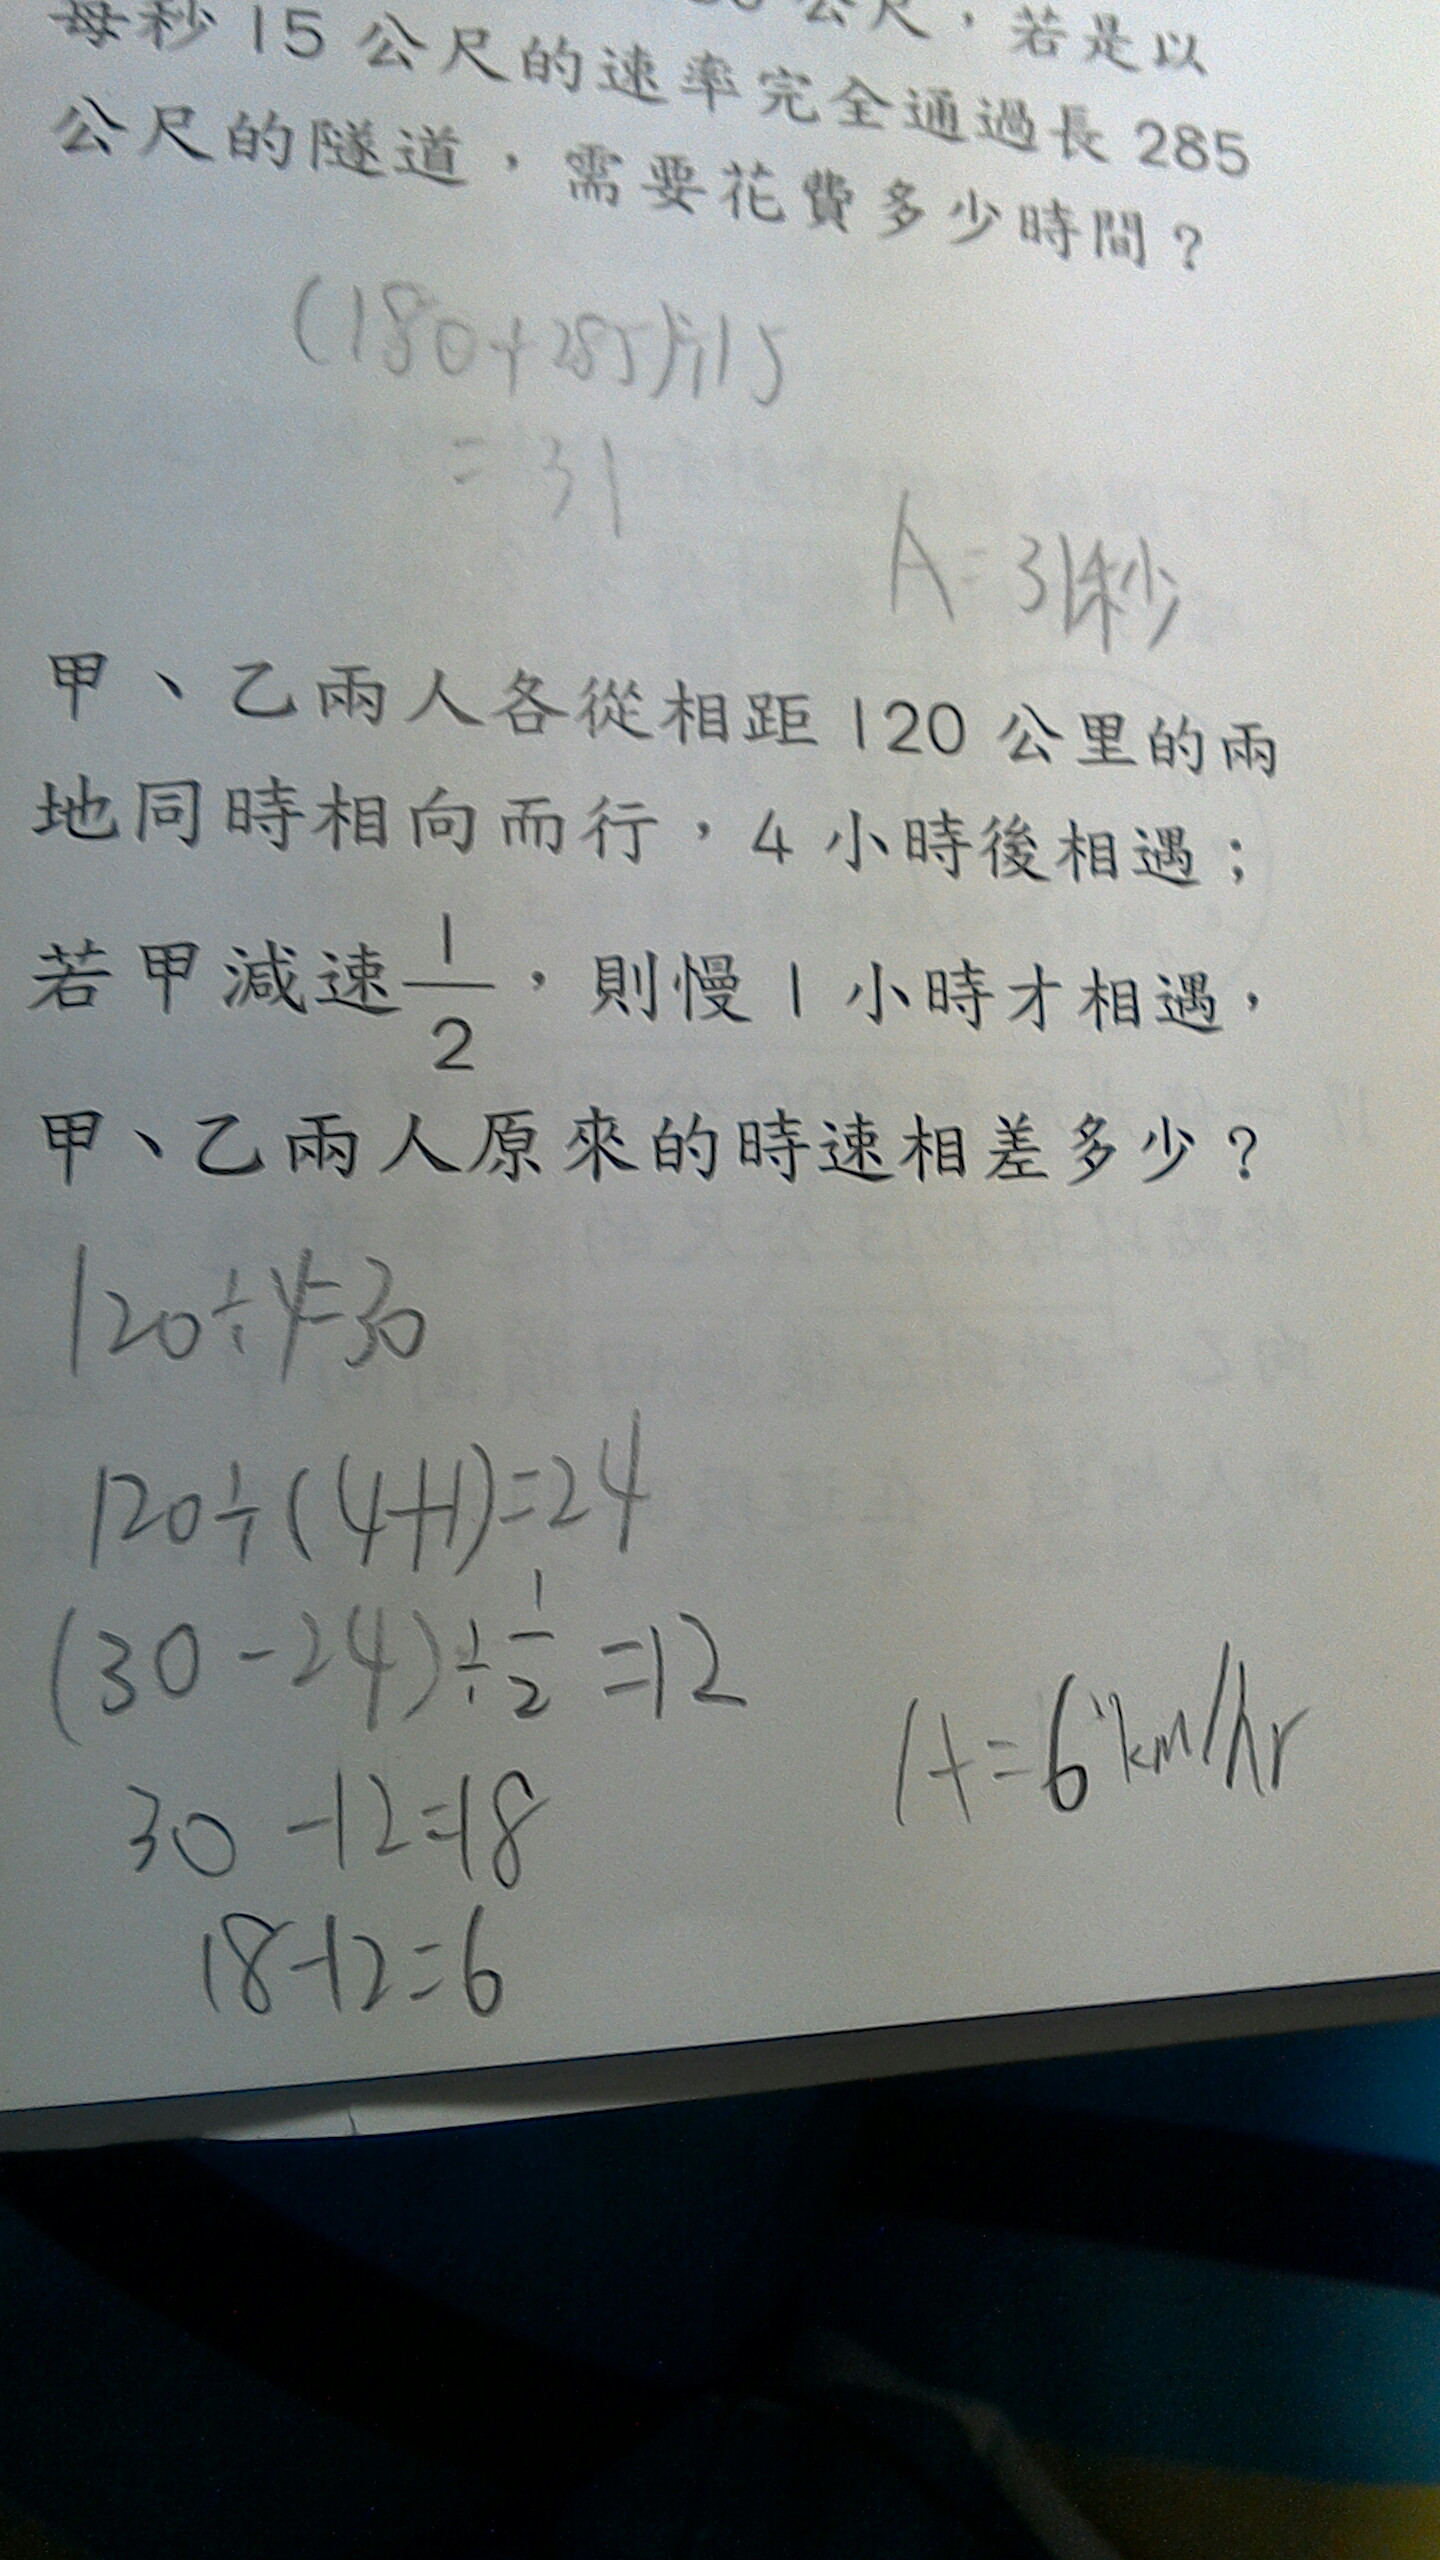 公尺，若是以
每秒15公尺的速率完全通過長285
公尺的隧道，需要花費多少時間？
(180+285)÷15
=31
A=31秒
甲、乙兩人各從相距120公里的兩
地同時相向而行，4小時後相遇；
若甲減速1/2，則慢1小時才相遇，
甲、乙兩人原來的時速相差多少？
120÷4=30
120÷(4+1)=24
(30-24)÷1/2=12
A=6km/hr
30-12=18
18-12=6